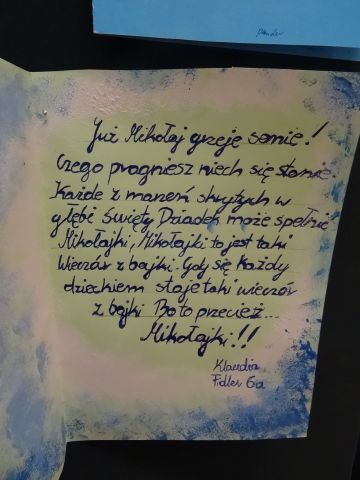 Już Mikołaj grzeje sanie!
Czego pragniesz niech się stanie.
Każde z marzeń skrytych w
głębi Święty Dziadek może spełnić
Mikołajki, Mikołajki to jest taki
Wieczór z bajki. Gdy się Każdy
dzieckiem staje taki wieczór
z bajki Bo to przecież...
Mikołajki!!
Klaudia
Fidler 6a